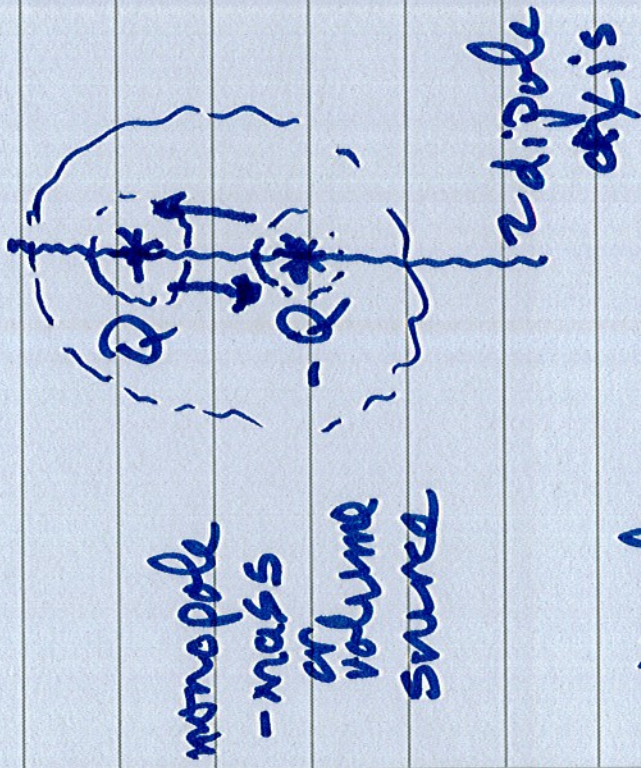 Q
monopole
-mass
or
volume
source
-Q
z dipole
axis